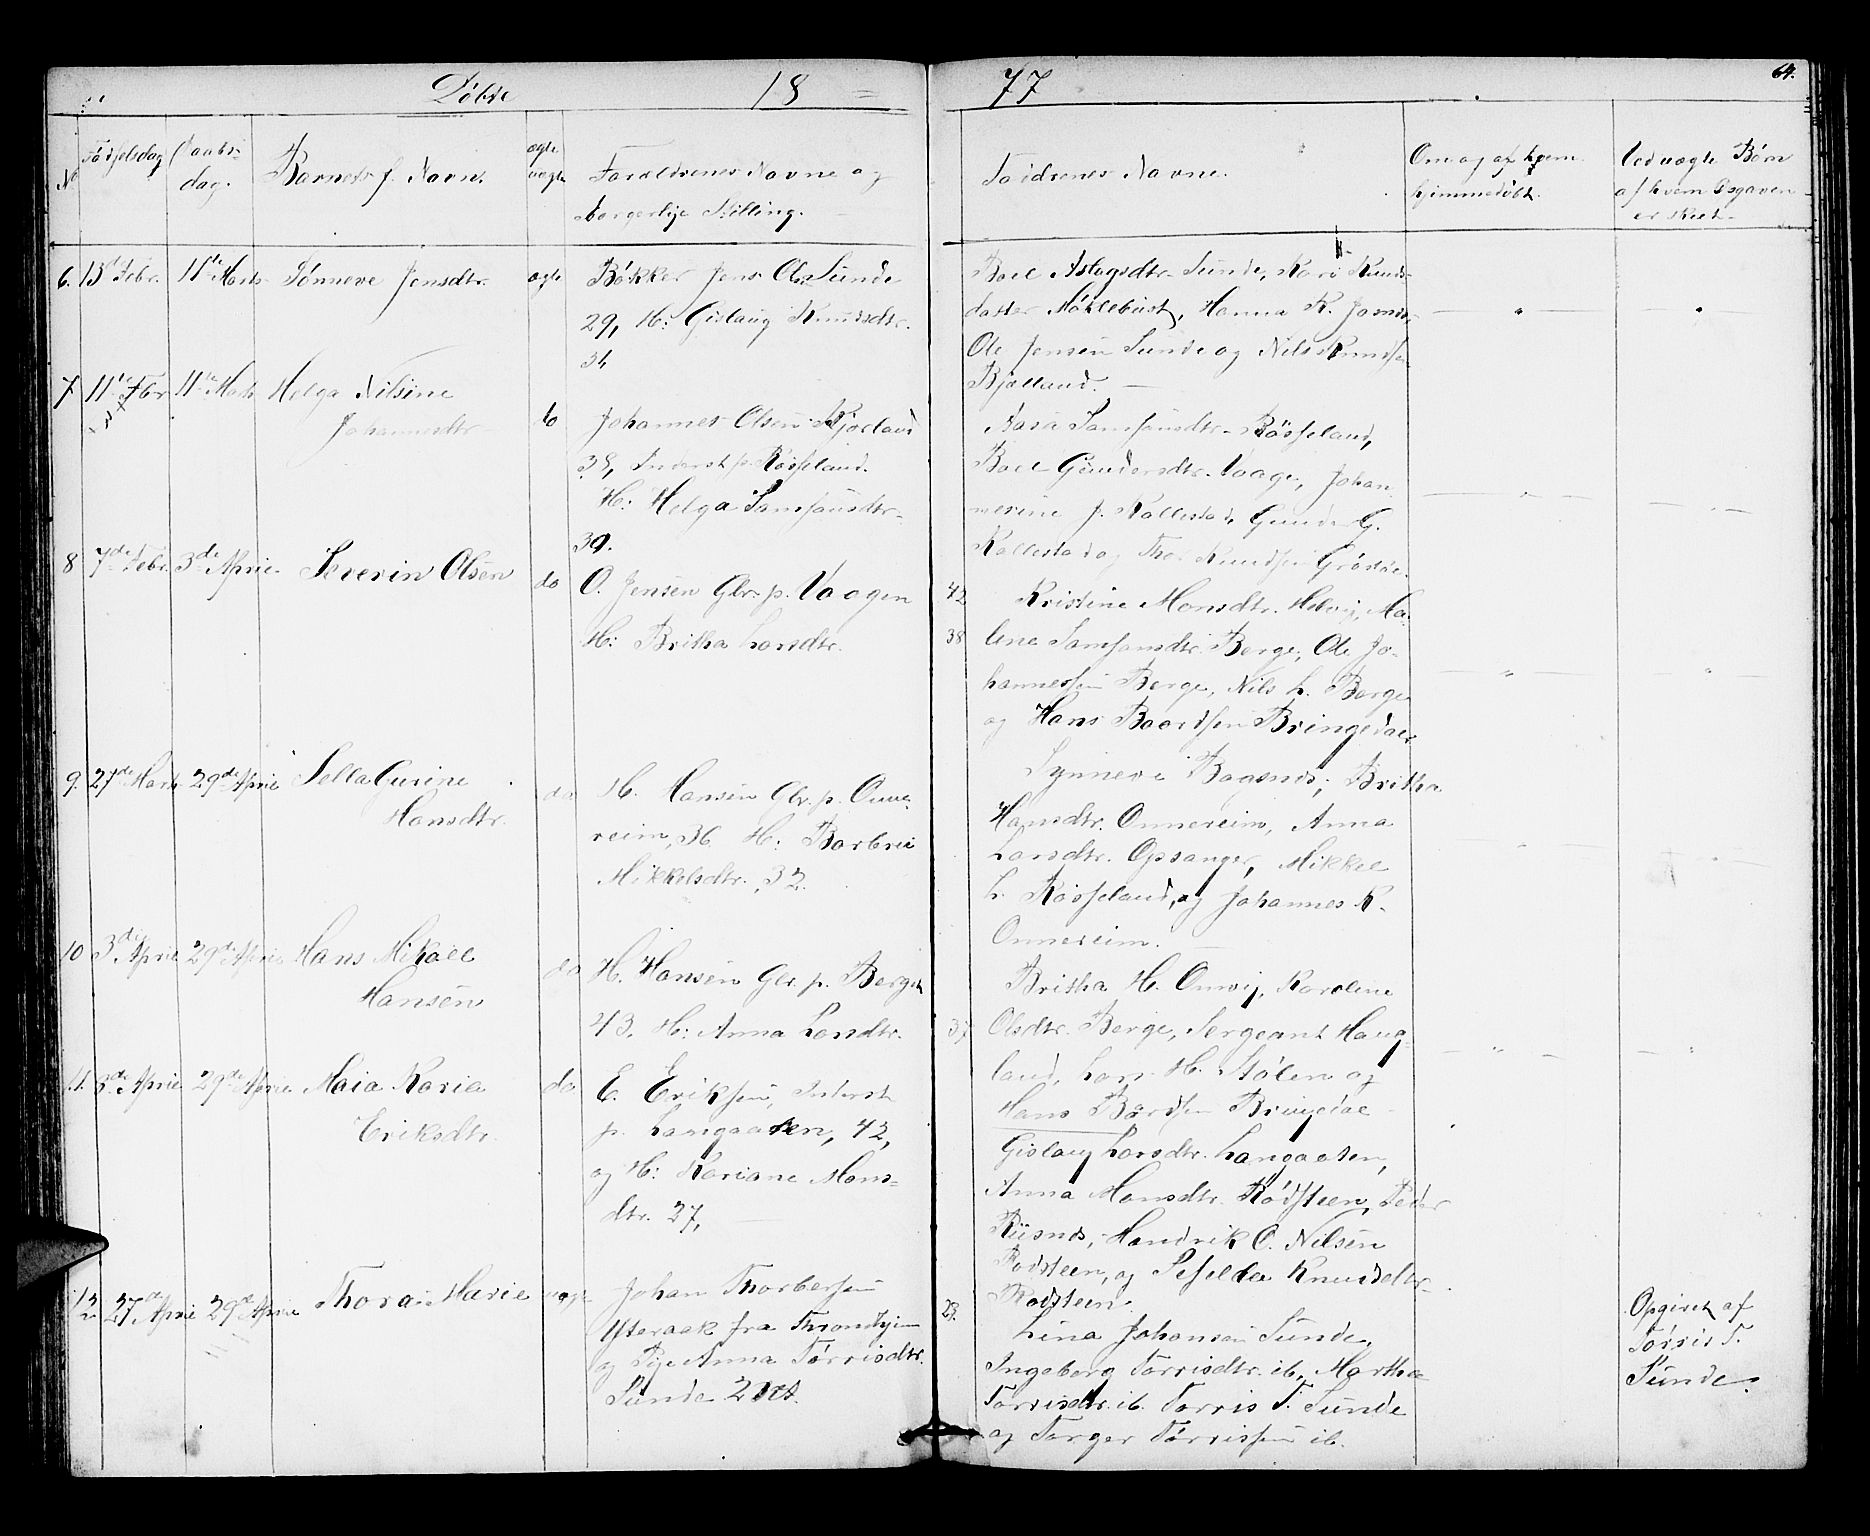 Döbte 18 77 64.
No Födselsdag Daabsdag. Barnets f. Navn. ægte uægte Forældrenes Navne og
borgerlige Stilling.
Faddrenes Navne.
Om og af hvem
hjemmedöbt.
Ved uægte Börn
af hvem Opgaven
er skeet.
6. 13 Febr. 11te Marts Sönneve Jensdtr. ægte Bökker Jens Ols. Sunde
29, H: Gislaug Knudsdtr.
34
Boel Aslagsdtr. Sunde, Kari Knuds-
datter Möklebust, Hanna K.
Ole Jensen Sunde og Nils Knudsen
Bjelland.
7 11te Fbr 11te Marts Helga Nilsine
Johannesdtr.
do Johannes Olsen
38, Inderst p. Rössland.
H: Helga Samsonsdtr.
39.
Samsonsdtr. Rössland,
Boel Gundersdtr. Vaage, Johan-
nesine J. Kallestad, Gunder G.
Kallestad og Thor Knudsen
8 7de Febr. 3de April Severin Olsen do O. Jensen Gbr. p. Vaagen 42
H: Britha Larsdtr. 38
Kristine Monsdtr. Helvig, Ma-
lene Samsonsdtr. Berge, Ole Jo-
hannessen Berge, Nils L. Berge
og Hans Baardsen Bringedal
9. 27de Marts 29de April Sella Gurine
Hansdtr.
do H. Hansen Gbr. p. Onne-
reim, 36 H: Barbrii
Mikkelsdtr., 32.
Synneve Bagsnes, Britha
Hansdtr. Onnereim, Anna
Larsdtr. Opsanger, Mikkel
L. Rössland, og Johannes K.
Onnereim.
10 3de April 29de April Hans Mikael
Hansen
do H. Hansen Gbr. p. Berge
43. H: Anna Larsdtr. 37
Britha H. Onnvig, Karoline
Olsdtr. Berge, Sergeant Haug-
land, Lars H. Stölen og
Hans Bardsen Bringedal
11. 3de April 29de April Maia Karia
Eriksdtr.
do E. Eriksen, Inderst
p. Langaasen, 42,
og H: Kariane Mons-
dtr. 27,
Gislaug Larsdtr. Langaasen,
Anna Monsdtr. Rödsteen, Peder
Riisnes, Hendrik O. Nilsen
Rødsteen, og Knudsdtr.
Rødsteen.
12 27de April 29de April Thora Marie uægte Johan Thorbersen
Ytteraae fra Trondhjem
og Pige Anna Torrisdtr. 23.
Sunde
Lina Johansen Sunde,
Ingeborg Torrisdtr. ib., Martha
Torrisdtr. ib. Torris T. Sunde
og Torger Törrissen ib.
Opgivet af
Torris T.
Sunde.